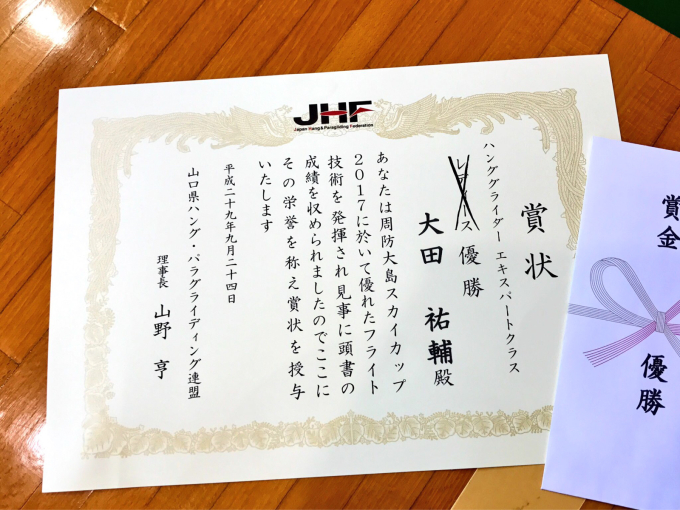 JHF
Japan Hang & Paragliding Federation
賞状
ハンググライダー エキスパートクラス
優勝
大田 祐輔殿
あなたは周防大島スカイカップ
2017に於いて優れたフライト
技術を発揮され見事に頭書の
成績を収められましたのでここに
その栄誉を称え賞状を授与
いたします
平成二十九年九月二十四日
山口県ハング・パラグライディング連盟
理事長 山野 亨
賞金
優勝